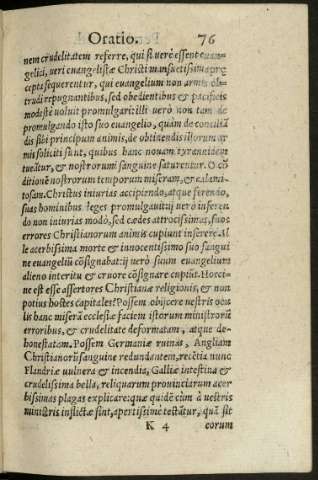 Oratio. 76
nem crudelitatem referre, qui si uerè essent euan-
gelici, ueri euangelistæ Christi mansuetissima præ
cepta sequerentur, qui euangelium non armis ob-
trudi repugnantibus, sed obedientibus & pacificis
modestè uoluit promulgari: illi uerò non tam de
promulgando isto suo euangelio, quàm de conciliã
dis sibi principum animis, de obtinendis illorum ar
mis soliciti sunt, quibus hanc nouam tyrannidem
tueãtur, & nostrorum sanguine saturentur. O cõ
ditionẽ nostrorum temporum miseram, & calami-
tosam. Christus iniurias accipiendo, atque ferendo,
suas hominibus leges promulgauit: ij uerò inferen
do non iniurias modò, sed cædes attrocissimas, suos
errores Christianorum animis cupiunt inserere. Il
le acerbissima morte & innocentissimo suo sangui
ne euangeliũ cõsignabat: ij uerò suum euangelium
alieno interitu & cruore cõsignare cupiũt. Hoccí-
ne est esse assertores Christianæ religionis, & non
potius hostes capitales? Possem obijcere uestris ocu
lis hanc miserã ecclesiæ faciem istorum ministrorũ
erroribus, & crudelitate deformatam, atque de-
honestatam. Possem Germaniæ ruinas, Angliam
Christianorũ sanguine redundantem, recẽtia nunc
Flandriæ uulnera & incendia, Galliæ intestina &
crudelissima bella, reliquarum prouinciarum acer
bissimas plagas explicare: quæ quidẽ cùm à uestris
ministris inflictæ sint, apertissimè testãtur, quã sit
K 4 eorum